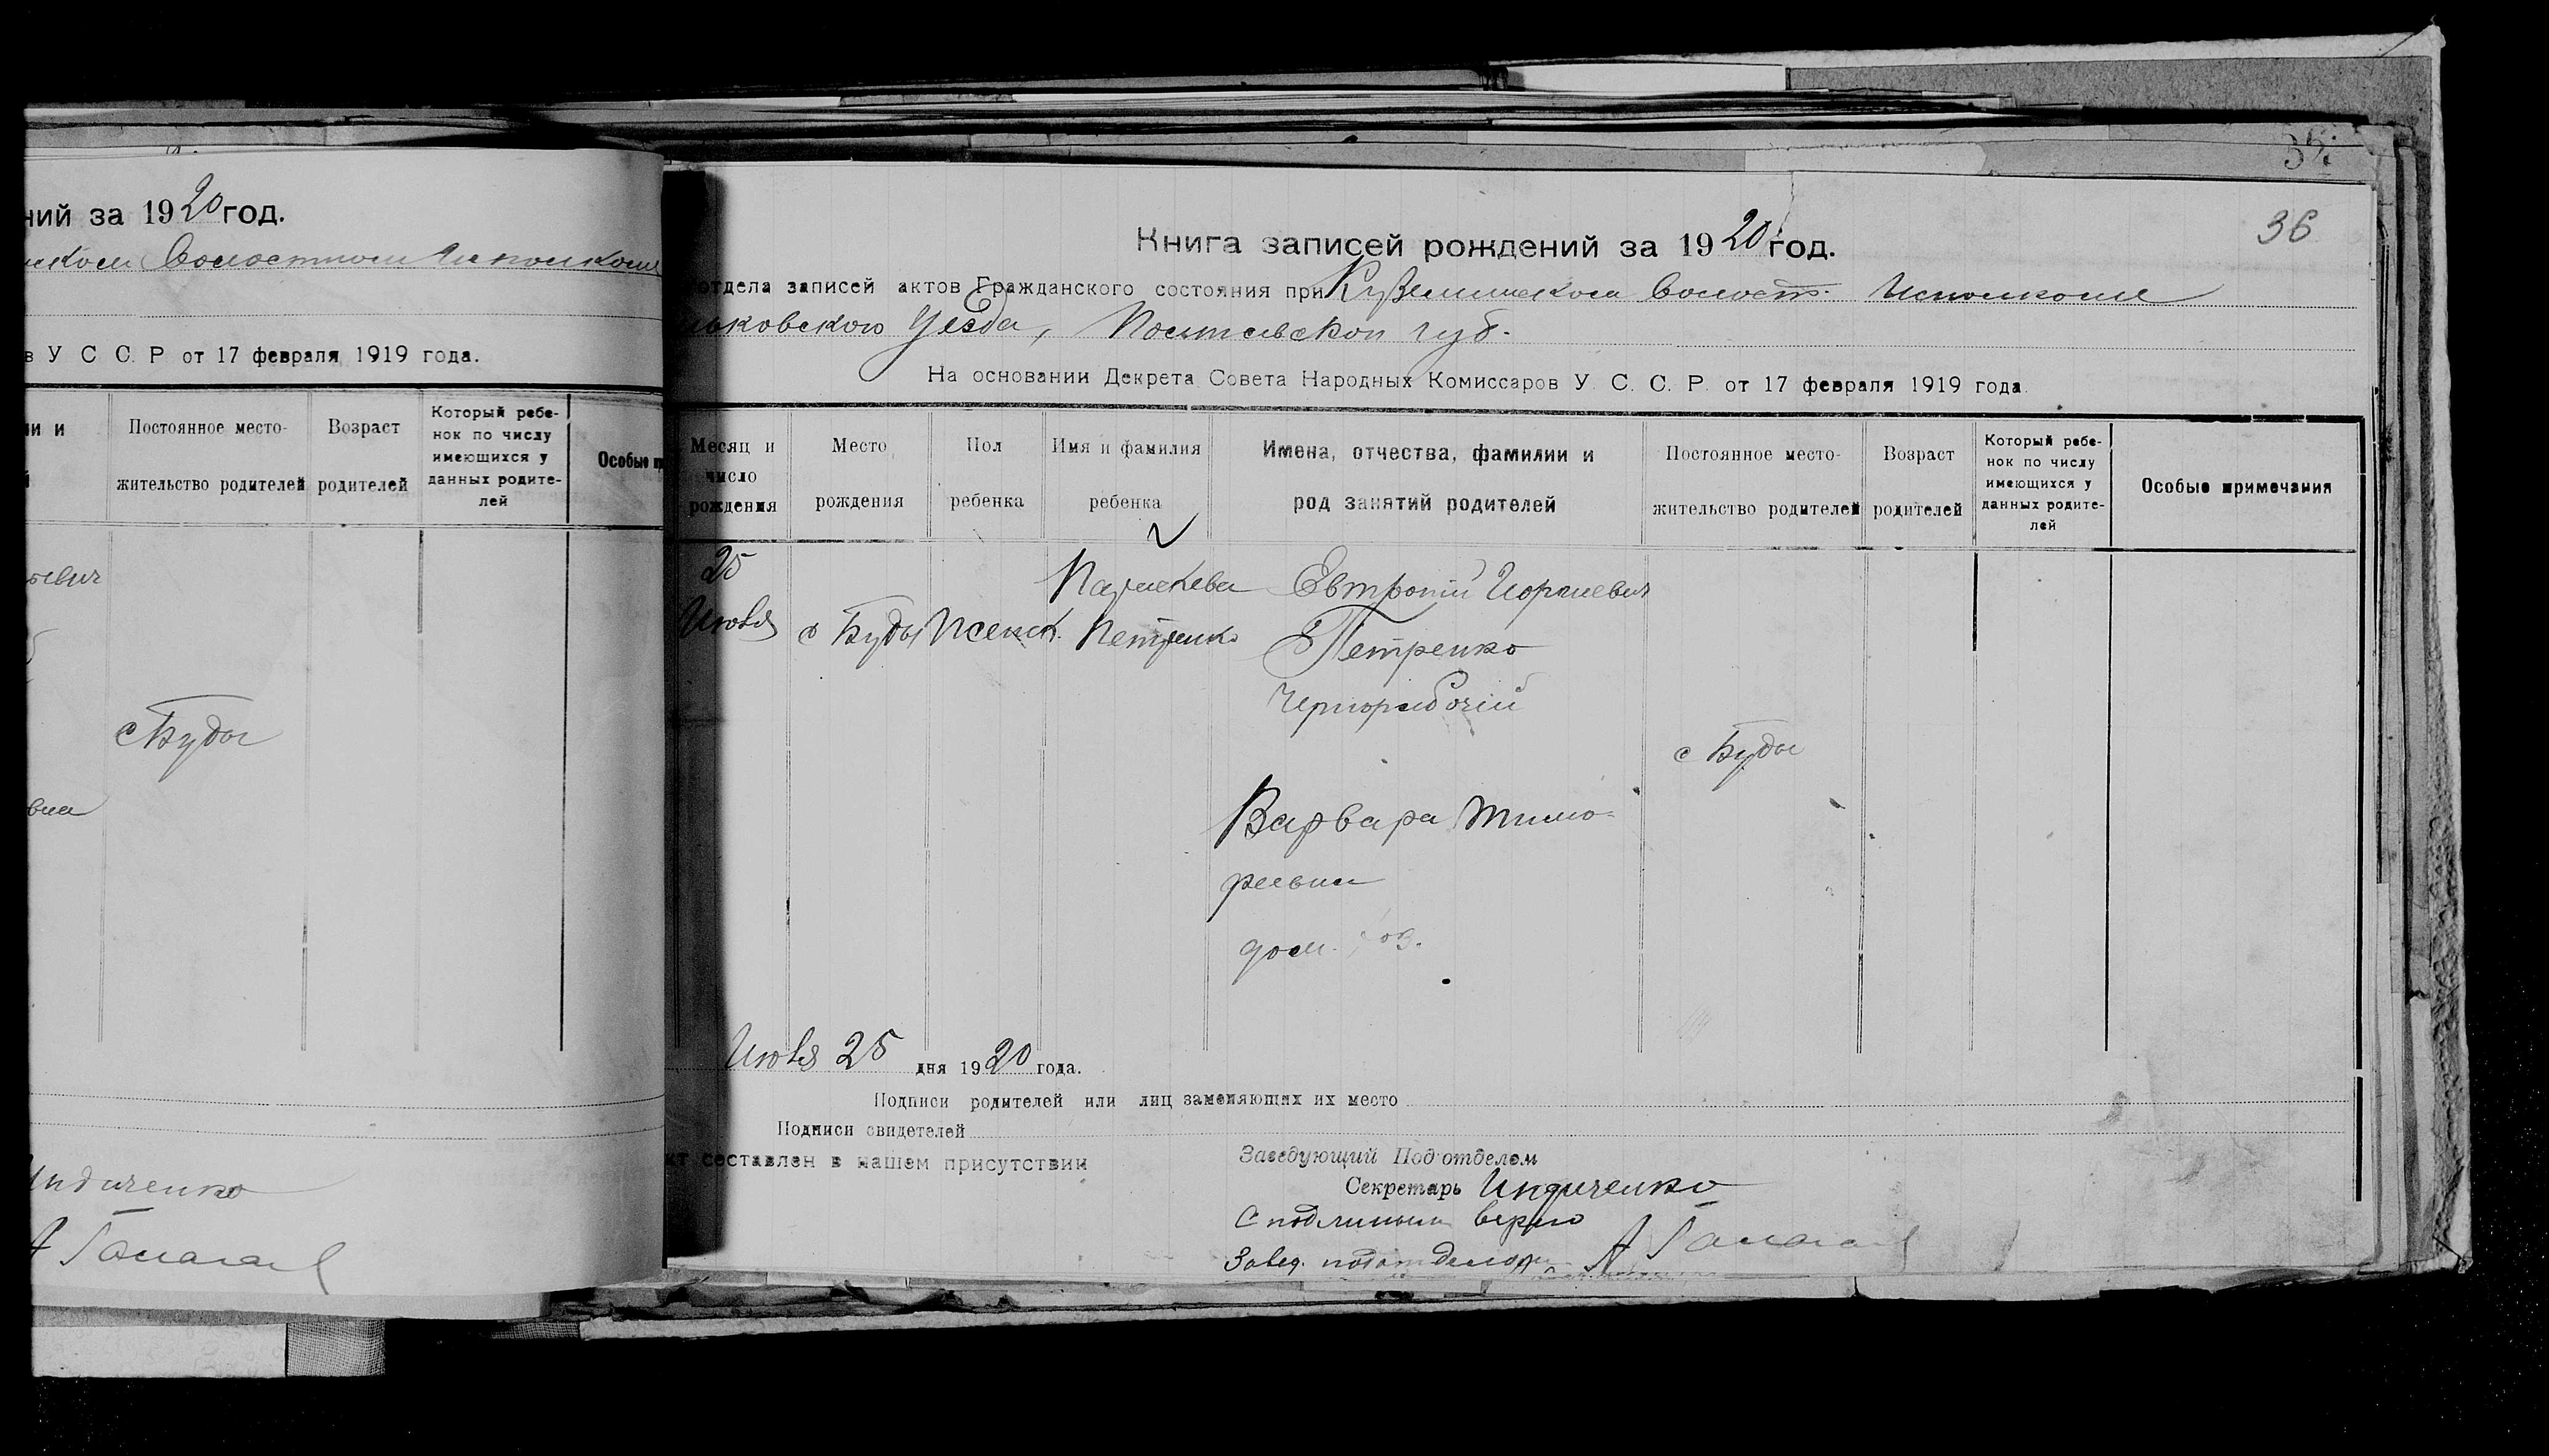 ний за 1920 год.
ском Волостном Исполкоме
в У С С Р от 17 февраля 1919 года.
ии и
Постоянное место-
жительство родителей
Возраст
родителей
Который ребе-
нок по числу
имеющихся у
данных родите-
лей
Особые пр
евич
с Буды
вна
Индиченко
А
35
36
Книга записей рождений за 1920 год.
отдела записей актов Гражданского состояния при Волост. Исполкоме
ьковского Уезда, Полтавской губ.
На основании Декрета Совета Народных Комиссаров У. С. С. Р. от 17 февраля 1919 года.
Месяц и
число
рождения
Место
рождения
Пол
ребенка
Имя и фамилия
ребенка
Имена, отчества, фамилии и
род занятий родителей
Постоянное место-
жительство родителей
Возраст
родителей
Который ребе-
нок по числу
имеющихся у
данных родите-
лей
Особые примечания
25
Июля
с Буды
Женск.
Параскева
Петренко
Евтропий
Петренко
Чернорабочій
Варвара Тимо-
феевна
дом. хоз.
с Буды
Июля 25 дня 1920 года.
Подписи родителей или лиц заменяющих их место
Подписи свидетелей
кт составлен в нашем присутствии
Заведующий Подотделом
Секретарь Индиченко
С подлинным верно
Завед. подотделом А